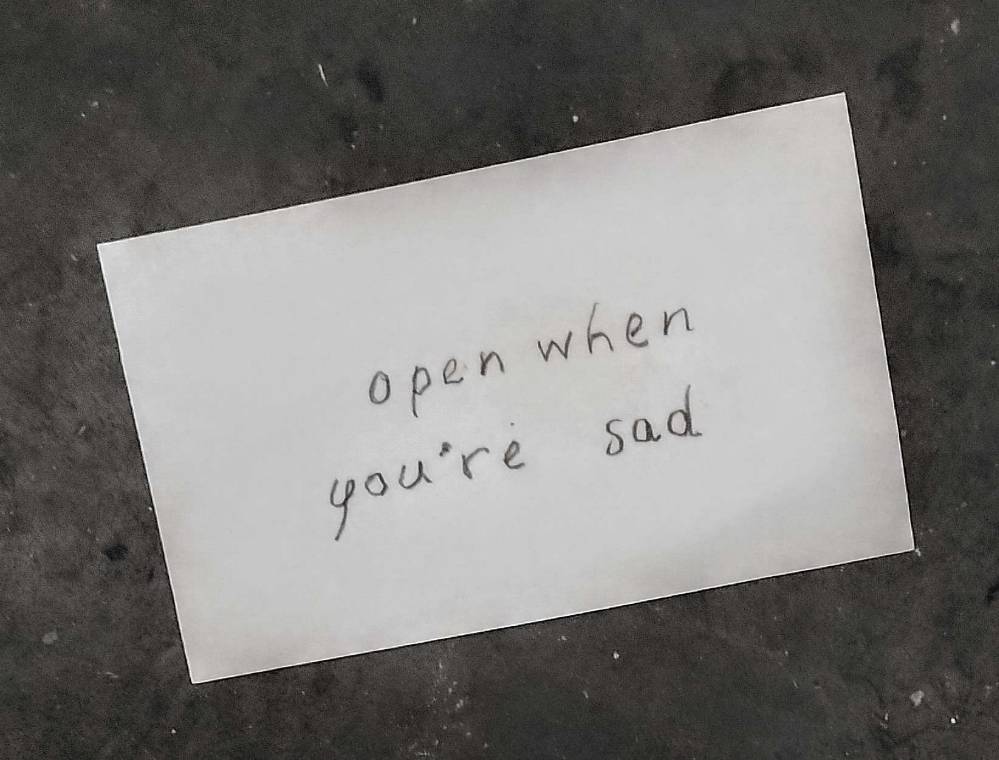 open when
you're sad